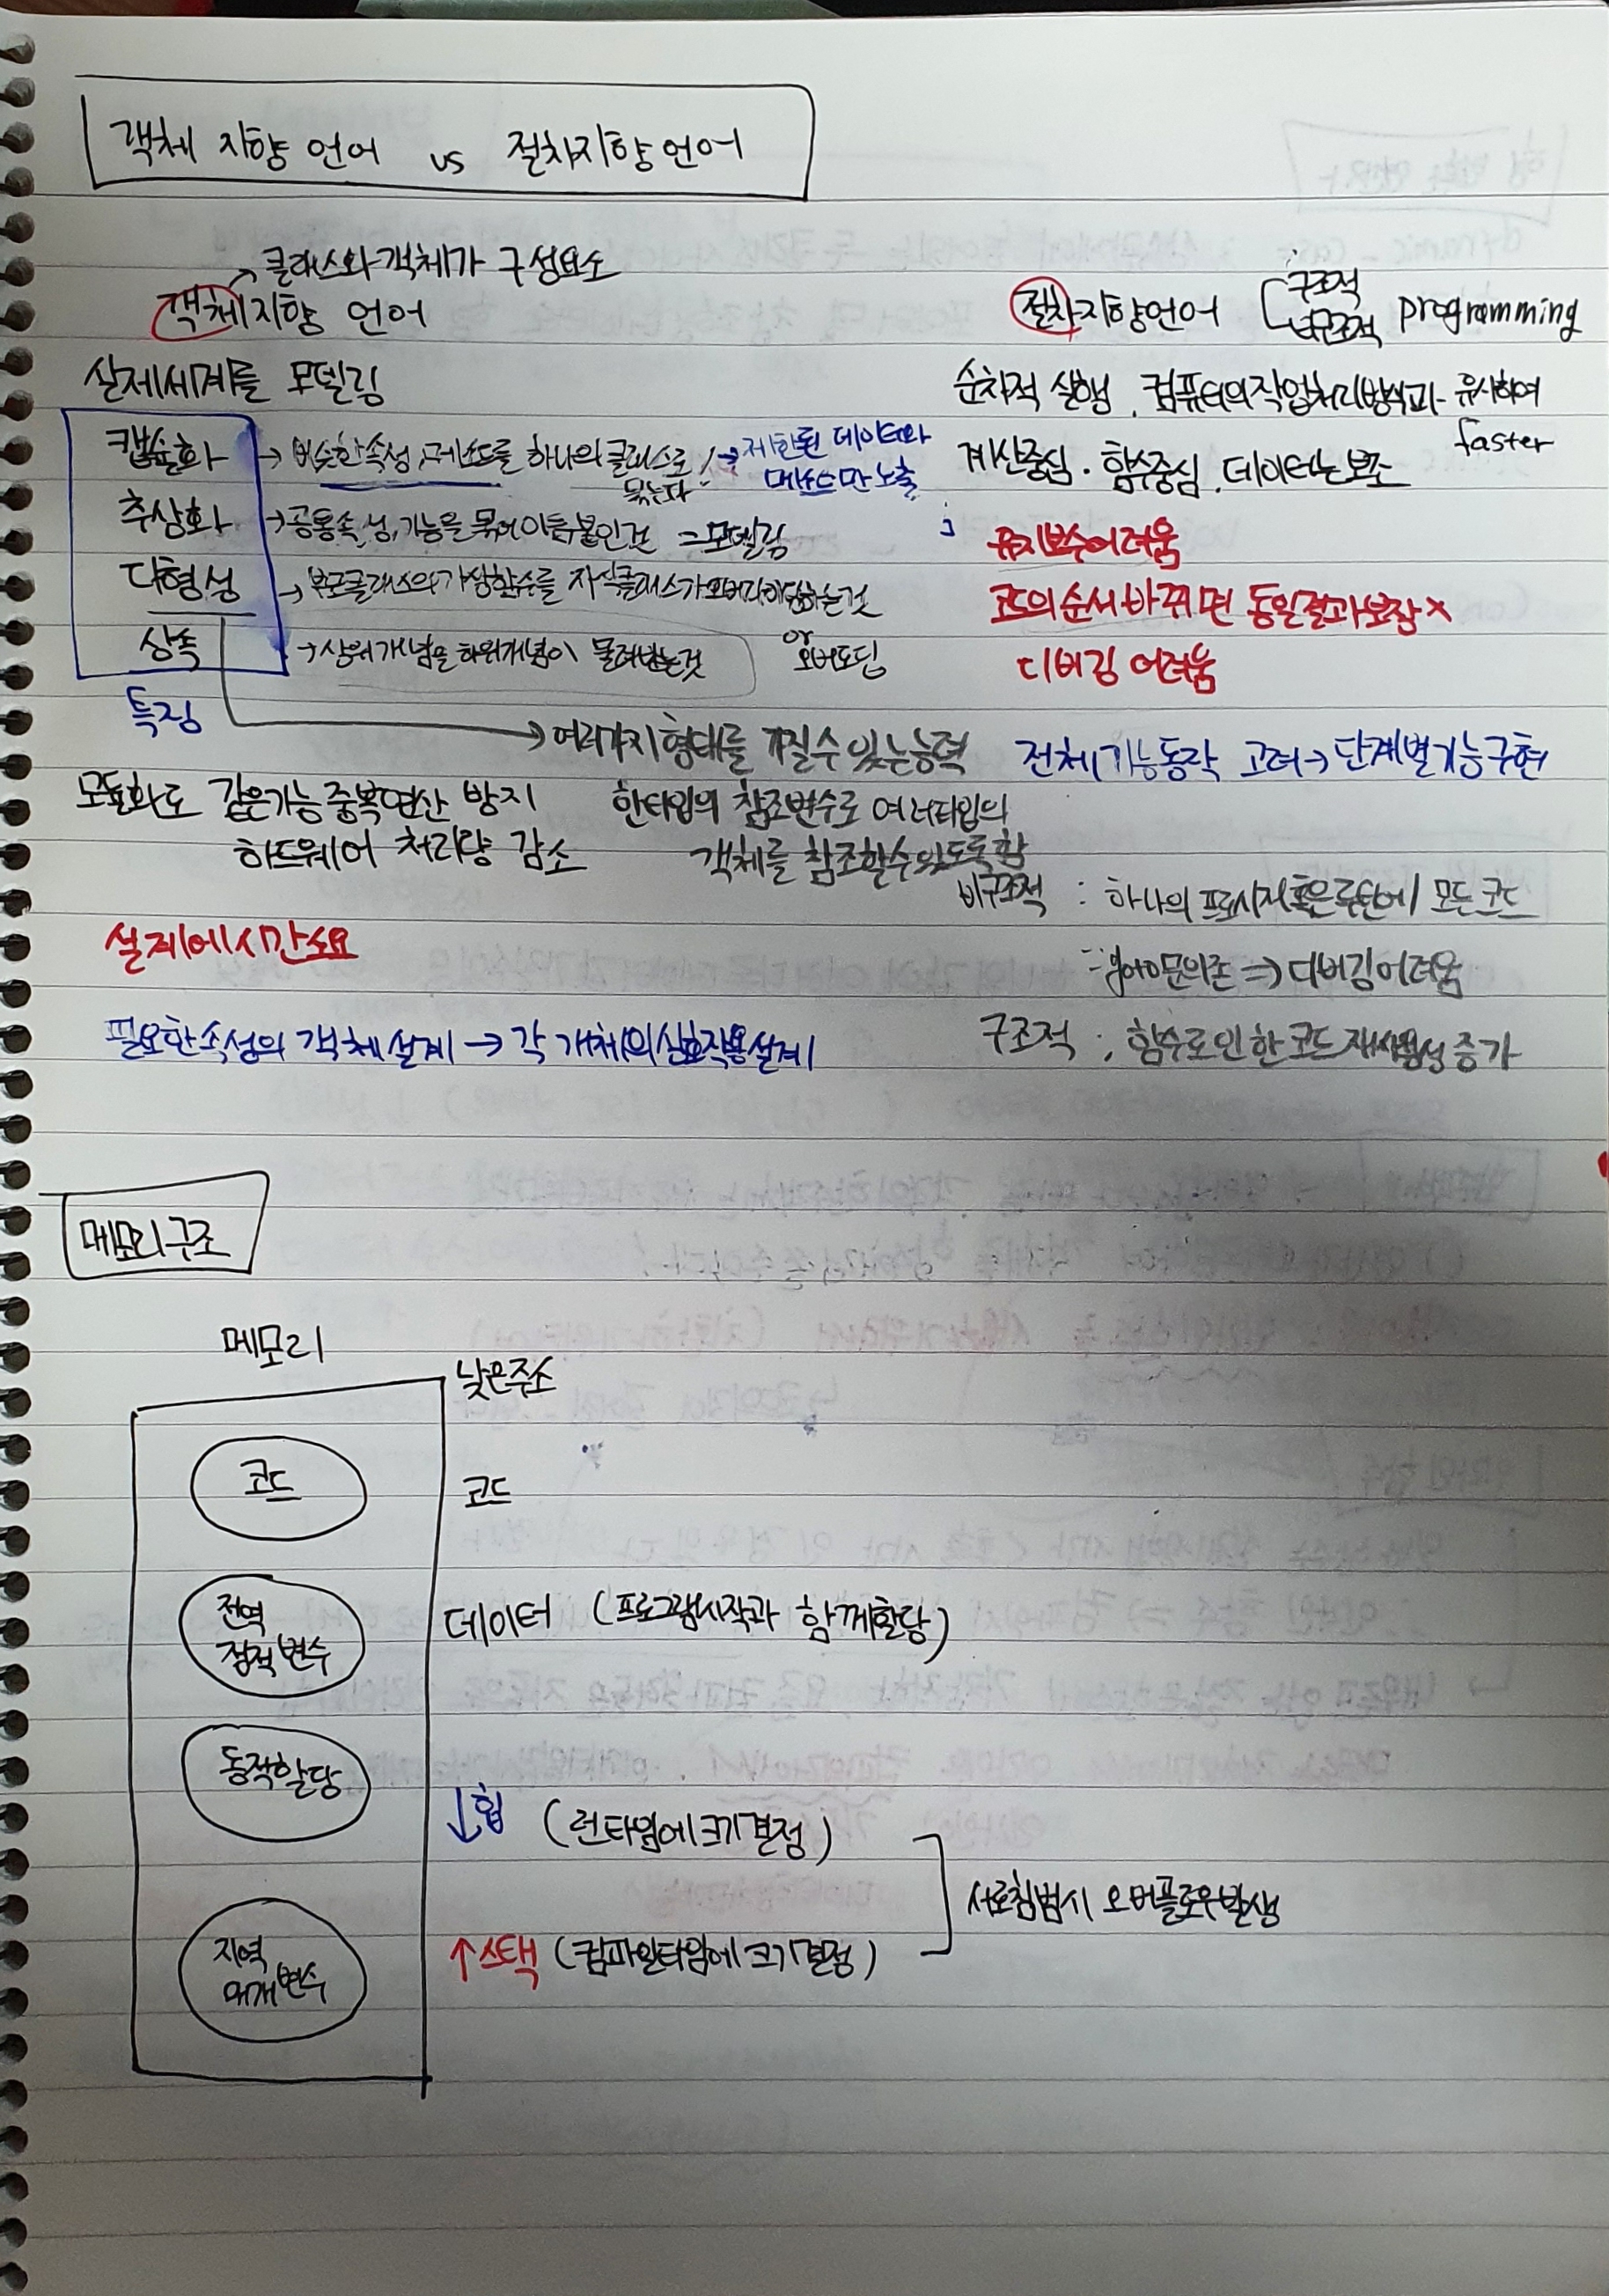 객체 지향 언어 vs 절차지향 언어
클래스와 객체가 구성요소
객체지향 언어
실제세계를 모델링
캡슐화 → 비슷한속성, 메소드를 하나의 클래스로 묶는다 → 제한된 데이터와 메소드만 노출
추상화 → 공통속성, 기능을 묶어 이름붙인것 = 모델링
다형성 → 부모클래스의 가상함수를 자식클래스가 오버라이딩하는것 or 오버로딩
상속 → 상위개념을 하위개념이 물려받는것
특징
→ 여러가지 형태를 가질 수 있는 능력
한타입의 참조변수로 여러타입의
객체를 참조할수있도록함
모듈화로 같은기능 중복연산 방지
하드웨어 처리량 감소
설계에시간소요
필요한속성의 객체설계 → 각 개체의 상호작용설계
절차지향언어 구조적 비구조적 programming
순차적 실행, 컴퓨터의작업처리방식과 유사하여
faster
계산중심, 함수중심, 데이터는보조
유지보수어려움
코드의 순서 바뀌면 동일결과보장 x
디버깅 어려움
전체기능동작 고려 → 단계별기능구현
비구조적 : 하나의 프로시저혹은루틴에 모든 코드
goto문의존 ⇒ 디버깅어려움
구조적 : 함수로인한 코드 재사용성 증가
메모리구조
메모리
낮은주소
코드 코드
전역
정적변수
데이터 (프로그램시작과 함께할당)
동적할당
↓힙 (런타임에크기결정)
서로침범시 오버플로우발생
지역
매개변수
↑스택 (컴파일타임에크기결정)